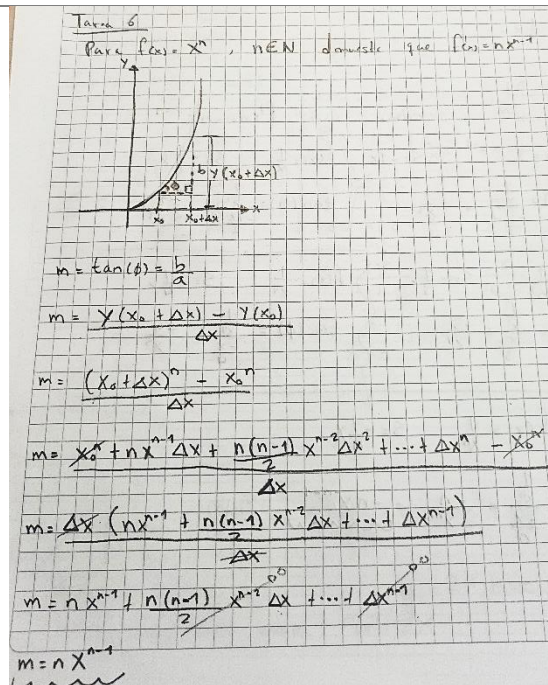 Tarea 6
Para f(x) = xⁿ, n∈N demuestre que f'(x) = nxⁿ⁻¹
y
b y(x₀+Δx)
φ
x₀ x₀+Δx x
m = tan(φ) = b/a
m = (y(x₀ + Δx) − y(x₀))/Δx
m = ((x₀+Δx)ⁿ − x₀ⁿ)/Δx
m = (x₀ⁿ + nxⁿ⁻¹Δx + n(n-1)/2 xⁿ⁻²Δx² + ... + Δxⁿ − x₀ⁿ)/Δx
m = Δx (nxⁿ⁻¹ + n(n-1)/2 xⁿ⁻²Δx + ... + Δxⁿ⁻¹)/Δx
m = n xⁿ⁻¹ + n(n-1)/2 xⁿ⁻² Δx + ... + Δxⁿ⁻¹ 0 0
m = n xⁿ⁻¹